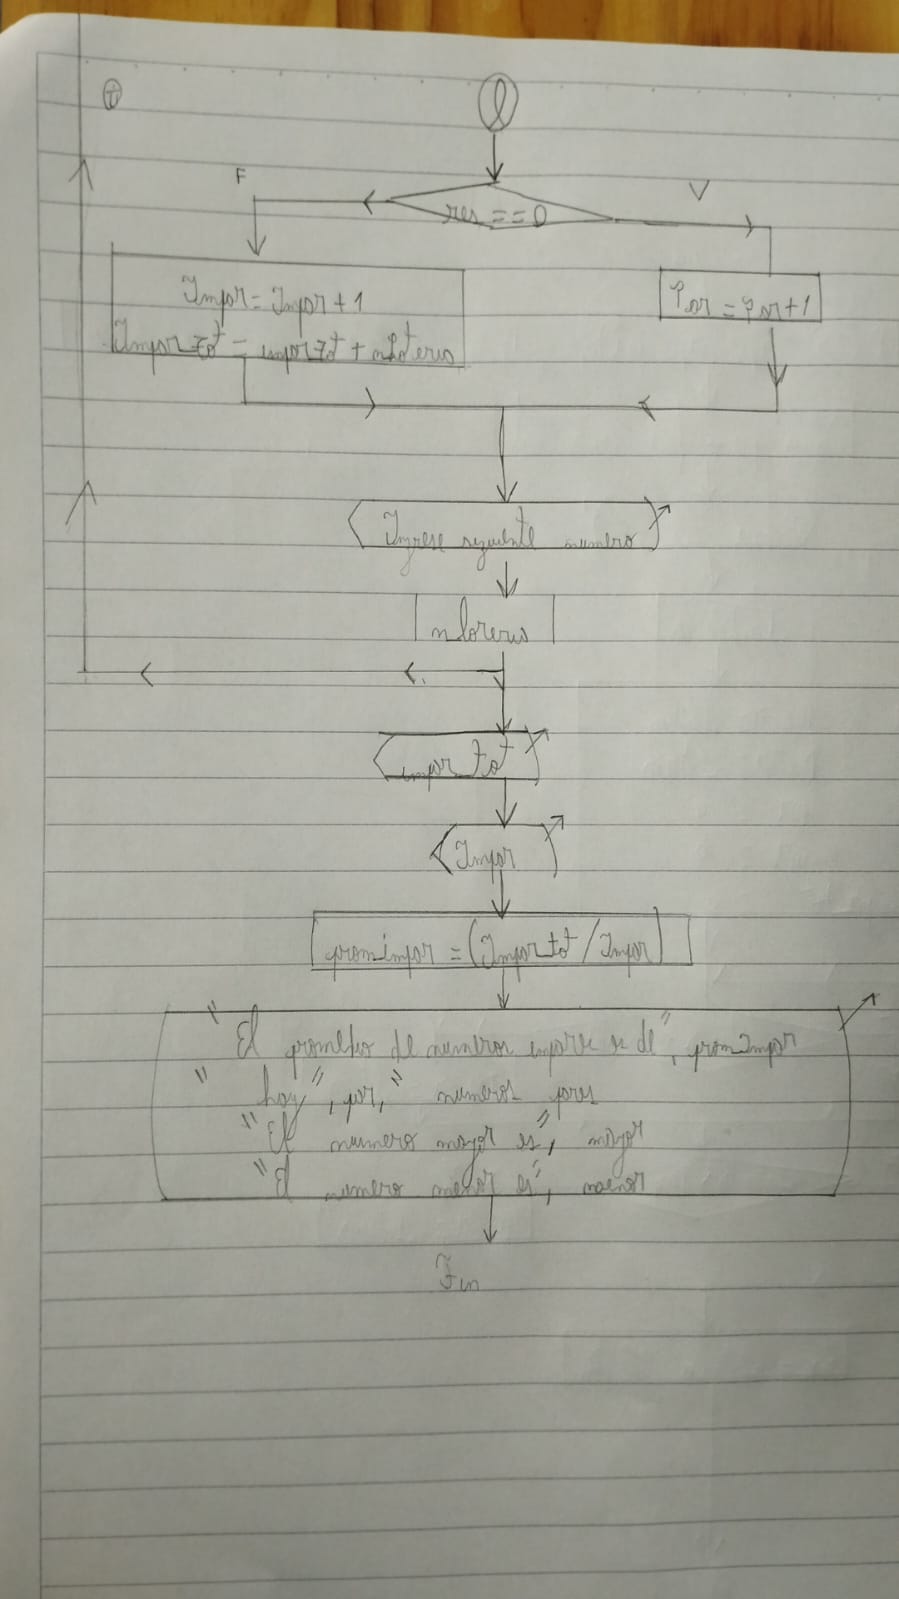 F
V
res == 0
Impor = Impor + 1
Par = Par + 1
Impor_tot = impor_tot +
Ingrese siguiente numero
impor_tot
Impor
promimpor = (Impor_tot / Impor)
"El promedio de numeros impare es de", promimpor
"hay", par, " numeros pares
"El numero mayor es", mayor
"El numero menor es", menor
Fin